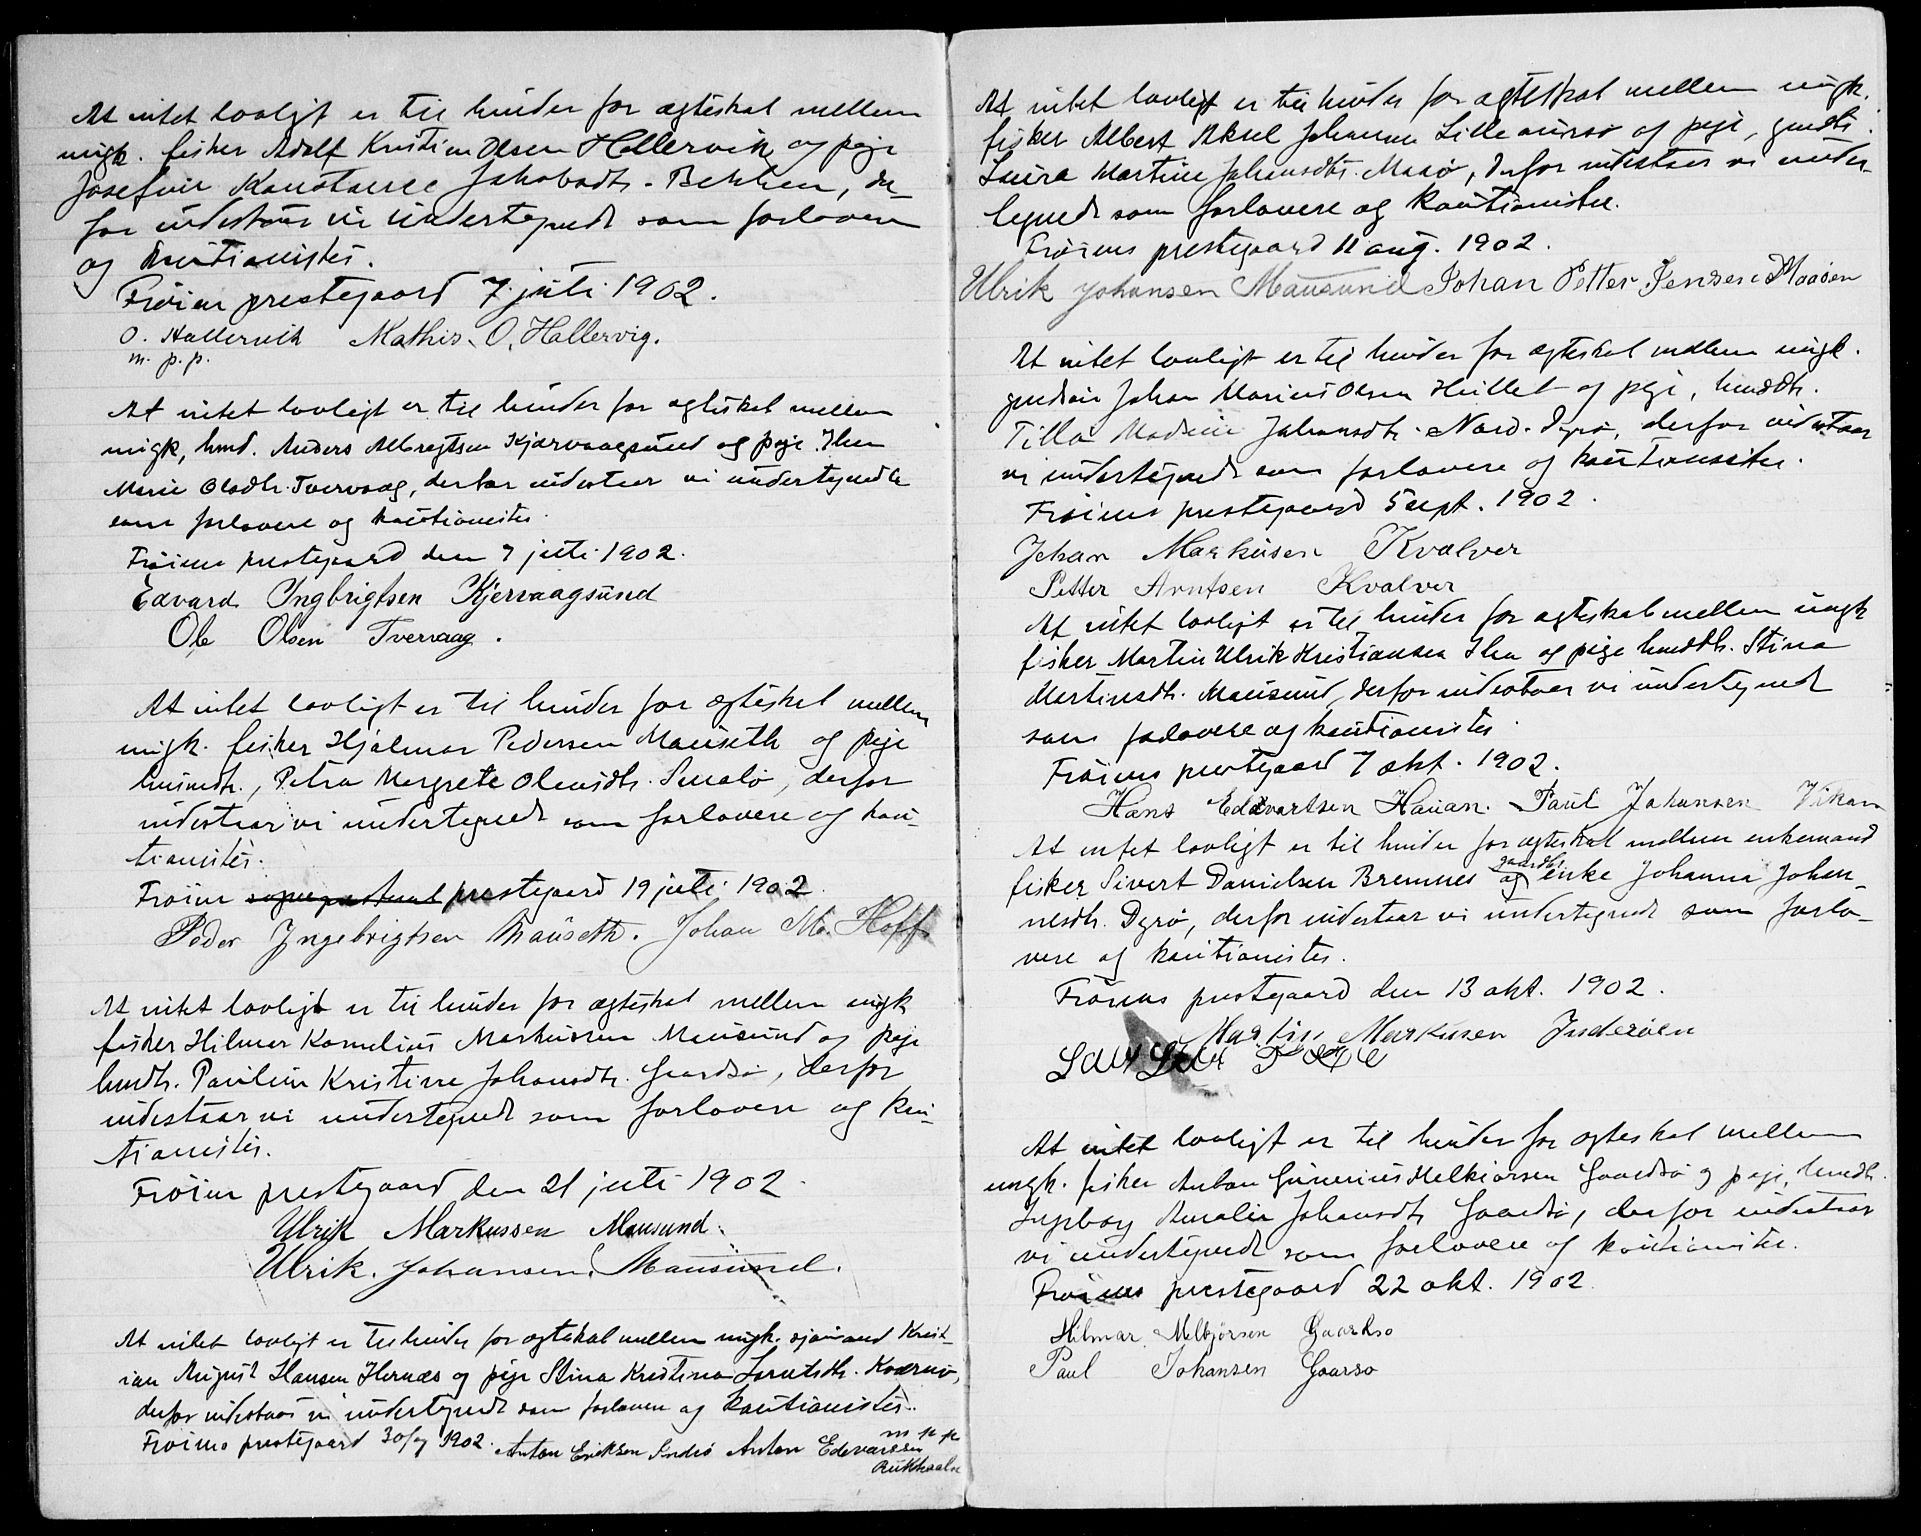 At intet lovligt er til hinder for ægteskab mellem
ungk. fisker Adolf Kristian Olsen Hallervik og pige
Josefine Konstanse Jakobsdtr. Bekken, der-
for indestaar vi undertegnede som forlovere
og kautionister.
Frøiens prestegaard 7 juli 1902.
O. Hallervik Mathis. O. Hallervig.
m. p. p.
At intet lovligt er til hinder for ægteskab mellem
ungk, husmd. Anders Albregtsen Kjærvaagsund og pige
Marie Olsdtr. Tvervaag, derfor indestaar vi undertegnede
som forlovere og kautionister.
Frøiens prestegaard den 7 juli 1902.
Edvard Ingbrigtsen Kjervaagsund
Ole Olsen Tvervaag.
At intet lovligt er til hinder for ægteskab mellem
ungk. fisker Hjalmar Pedersen Mauseth og pige
husmdtr., Petra Margrete Olausdtr. Smalø, derfor
indestaar vi undertegnede som forlovere og kau-
tionister.
Frøiens prestegaard 19 juli 1902
Peder Ingebrigtsen Mauseth. Johan M. Hoff
At intet lovligt er til hinder for ægteskab mellem ungk
fisker Hilmar Kornelius Markussen Mausund og pige
husmdtr. Pauline Kristine Johansdtr. Gaardsø, derfor
indestaar vi undertegnede som forlovere og kau-
tionister.
Frøiens prestegaard den 21 juli 1902.
Ulrik Markussen Mausund.
Ulrik. Johansen. Mausund.
At intet lovligt er til hinder for ægteskab mellem ungk. sjømand Krist-
ian August Hansen Hernæs og pige Stina Kristina Kværnø,
derfor indestaar vi undertegnede som forlovere og kautionister.
Frøiens prestegaard 30/7 1902. Anton Eriksen Indrø Anton Edevartsen
m p p
At intet lovligt er til hinder for ægteskab mellem ungk.
fisker Albert Aksel Johansen Lilleaursø og pige, gmdtr.
Laura Martine Johansdtr. Masø, derfor indestaar vi under-
tegnede som forlovere og kautionister.
Frøiens prestegaard 11 aug. 1902.
Ulrik Johansen Mausund Johan Petter Jensen Maasøen
At intet lovligt er til hinder for ægteskab mellem ungk.
Johan Marius Olsen og pige, husmdtr.
Johansdtr. Nord-Dyrø, derfor indestaar
vi undertegnede som forlovere og kautionister.
Frøiens prestegaard 5 sept. 1902.
Johan Markusen Kvalver
Petter Arntsen Kvalver
At intet lovligt er til hinder for ægteskab mellem ungk
fisker Martin Ulrik Kristiansen og pige husmdtr. Stina
Martinsdtr. Mausund, derfor indestaar vi undertegnede
som forlovere og kautionister.
Frøiens prestegaard 7 okt. 1902.
Hans Edevartsen Hauan. Paul Johansen Vikan
At intet lovligt er til hinder for ægteskab mellem enkemand
fisker Sivert Danielsen Bremnes og gaardbr. enke Johanna Johan-
nesdtr. Dyrø, derfor indestaar vi undertegnede som forlo-
vere og kautionister.
Frøiens prestegaard den 13 okt. 1902.
Martin Markusen Inderøen
At intet lovligt er til hinder for ægteskab mellem
ungk. fisker Anton Gunerius Melkiorsen Gaardsø og pige, husmdtr.
Ingeborg Amalie Johansdtr. Gaardsø, derfor indestaar
vi undertegnede som forlovere og kautionister.
Frøiens prestegaard 22 okt. 1902.
Hilmar Melkjørsen Gaardsø
Paul Johansen Gaarsø